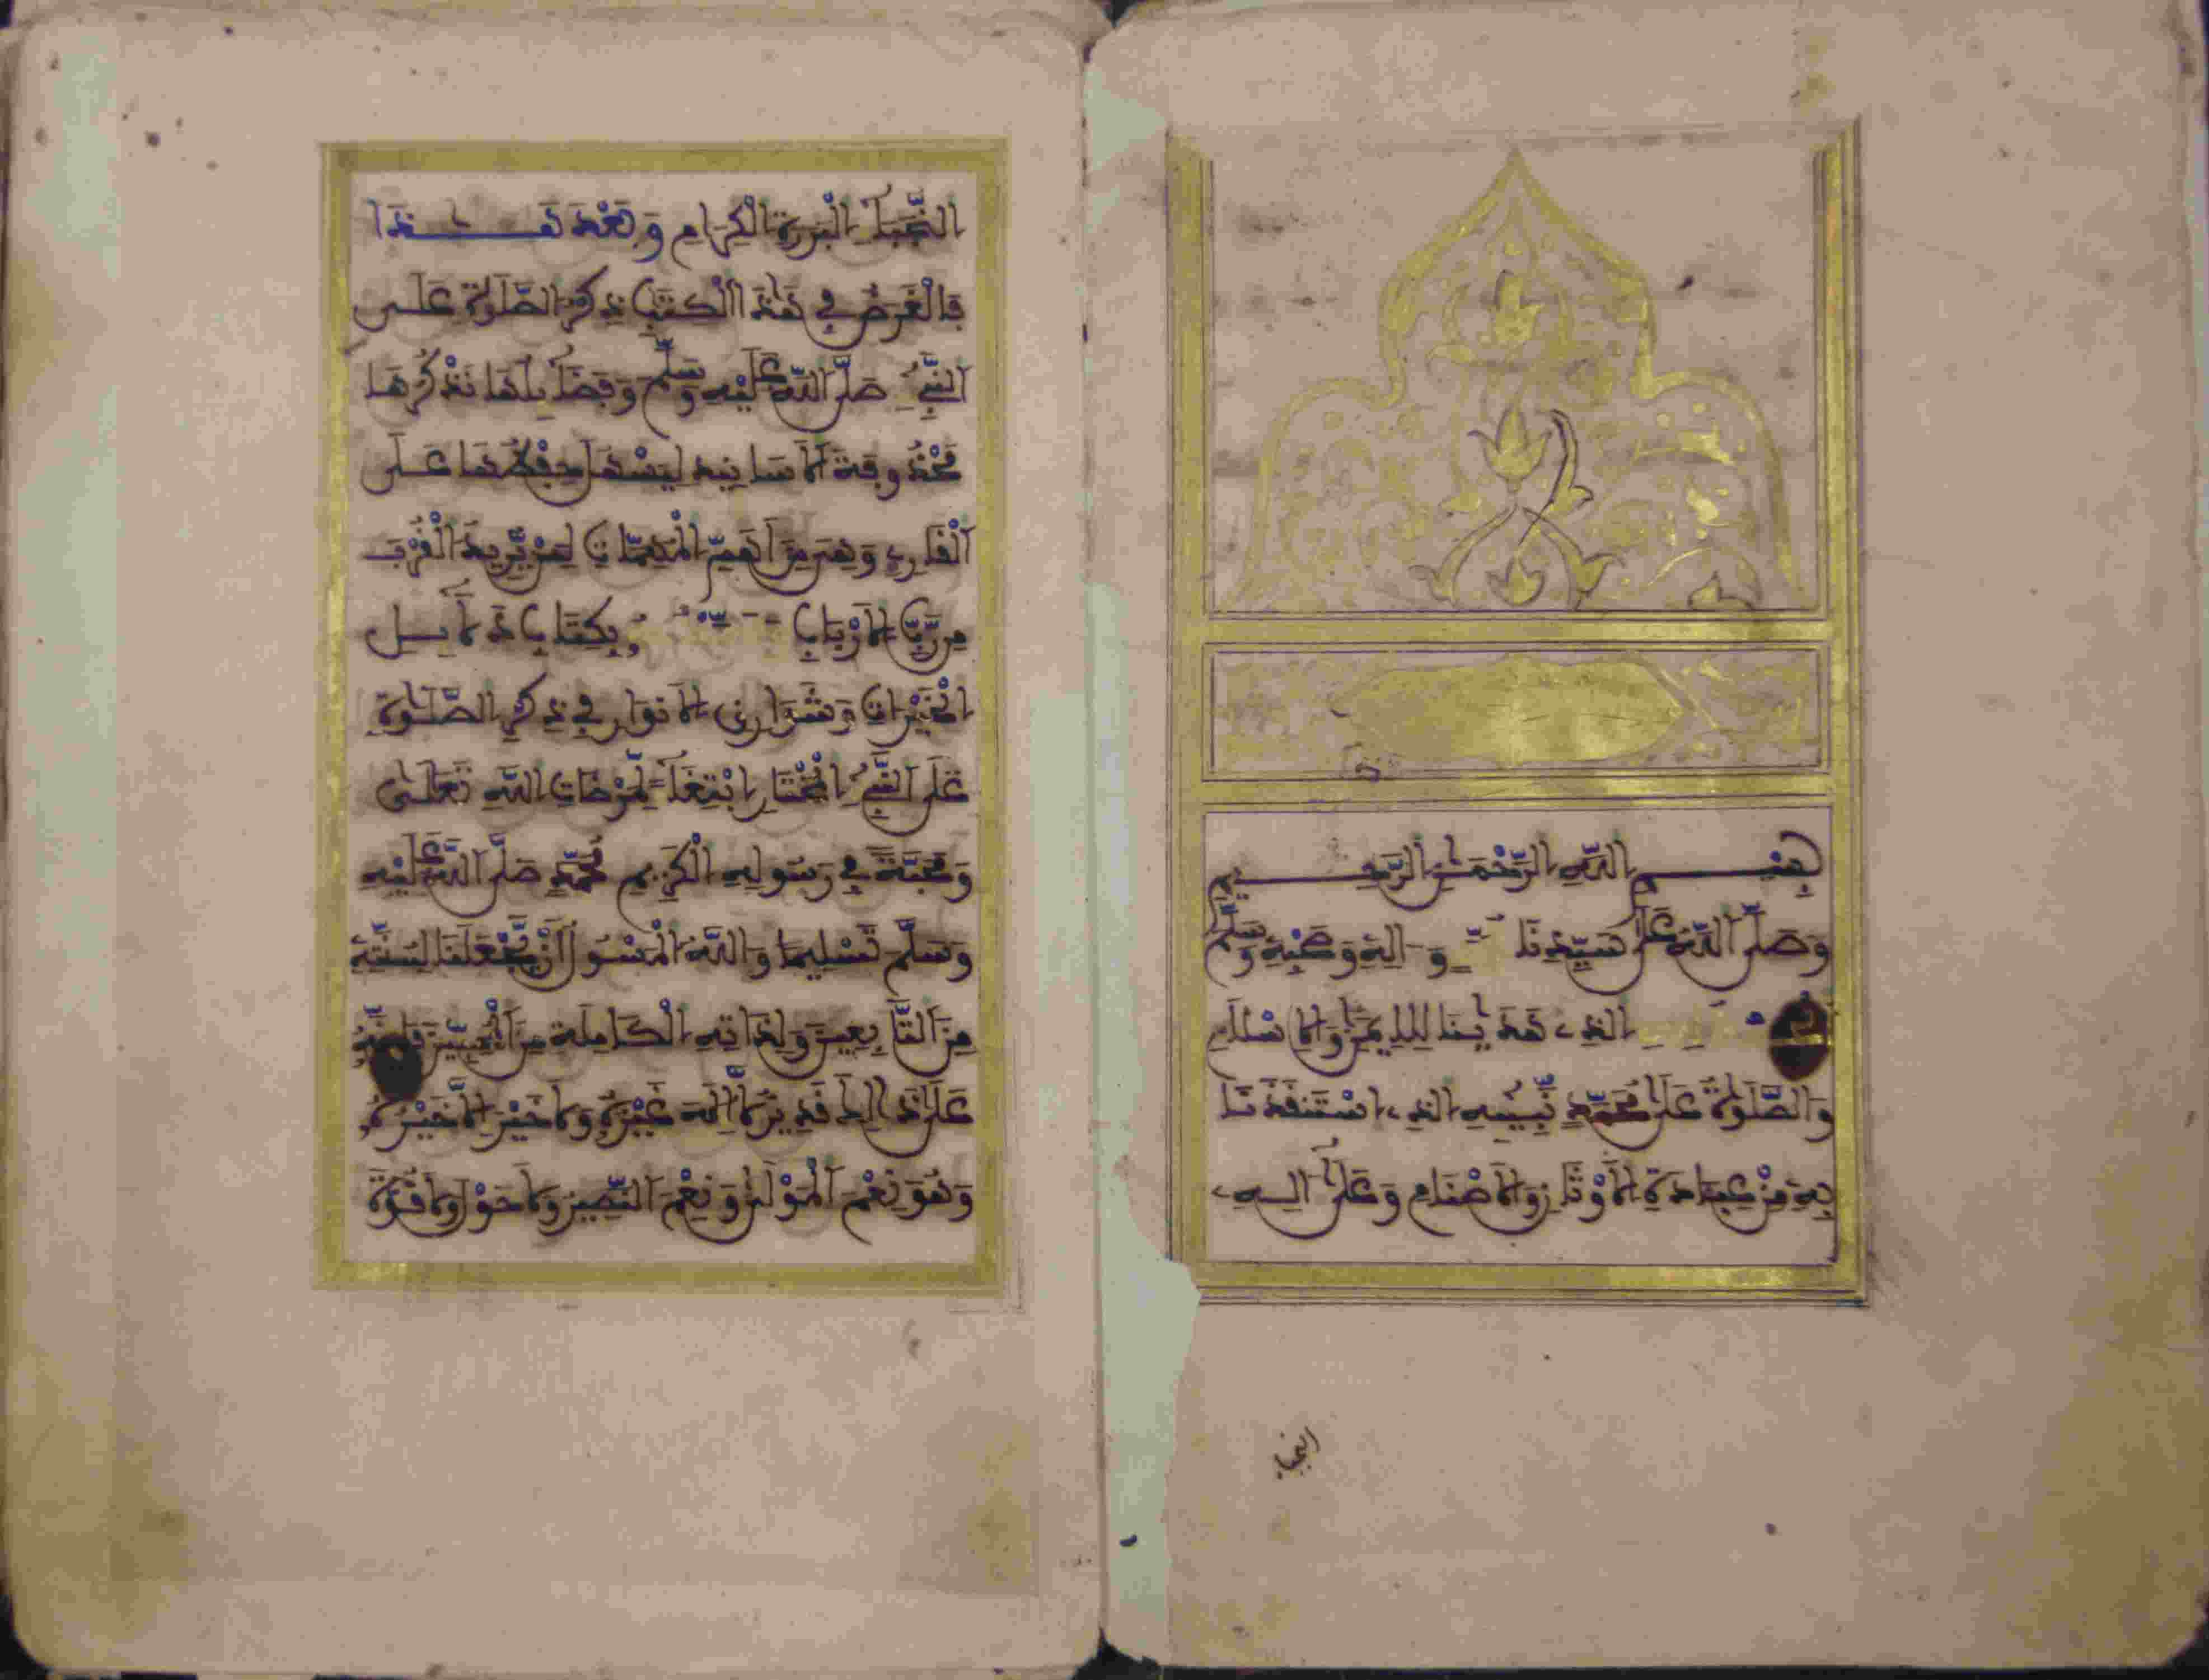 بِسْمِ اللَّهِ الرَّحْمَٰنِ الرَّحِيمِ
وَصَلَّى اللَّهُ عَلَى سَيِّدِنَا وَءَالِهِ وَصَحْبِهِ وَسَلَّمَ
الذِي هَدَيٰنَا لِلِايمَٰنِ وَالِاسْلَامِ
وَالصَّلَوٰةُ عَلَى مُحَمَّدٍ نَّبِيئِهِ الذِي اسْتَنقَذَنَا
بِهِ مِنْ عِبَادَةِ الَاوْثَانِ وَالَاصْنَامِ وَعَلَى ءَالِهِ
النجبا
النُّجَبَآءِ الْبَرَرَةِ الْكِرَامِ وَبَعْدَ هَٰذَا
فَالْغَرَضُ فِي هَٰذَا الْكِتَٰبِ ذِكْرُ الصَّلَوٰةِ عَلَى
النَّبِيءِ صَلَّى اللَّهُ عَلَيْهِ وَسَلَّمَ وَفَضَآئِلُهَا نَذْكُرُهَا
مَحْذُوفَةَ الَاسَانِيدِ لِيَسْهُلَ حِفْظُهَا عَلَى
الْقَارِي وَهِيَ مِنَ اَهَمِّ الْمُهِمَّاتِ لِمَنْ يُّرِيدُ الْقُرْبَ
مِن رَّبِّ الَارْبَابِ بِكِتَابِ دَلَآئِلِ
الْخَيْرَاتِ وَشَوَارِقِ الَانْوَارِ فِي ذِكْرِ الصَّلَوٰةِ
عَلَى النَّبِيءِ الْمُخْتَارِ ابْتِغَآءً لِّمَرْضَاتِ اللَّهِ تَعَالَى
وَمَحَبَّةً فِي رَسُولِهِ الْكَرِيمِ مُحَمَّدٍ صَلَّى اللَّهُ عَلَيْهِ
وَسَلَّمَ تَسْلِيمًا وَاللَّهُ الْمَسْئُولُ أَنْ يَّجْعَلَنَا لِسُنَّتِهِ
مِنَ التَّابِعِينَ وَلِذَاتِهِ الْكَامِلَةِ مِنَ الْمُحِبِّينَ فَإِنَّهُ
عَلَى ذَٰلِكَ قَدِيرٌ لَآ إِلَٰهَ غَيْرُهُ وَلَا خَيْرَ إِلَّا خَيْرُهُ
وَهُوَ نِعْمَ الْمَوْلَى وَنِعْمَ النَّصِيرُ وَلَا حَوْلَ وَلَا قُوَّةَ